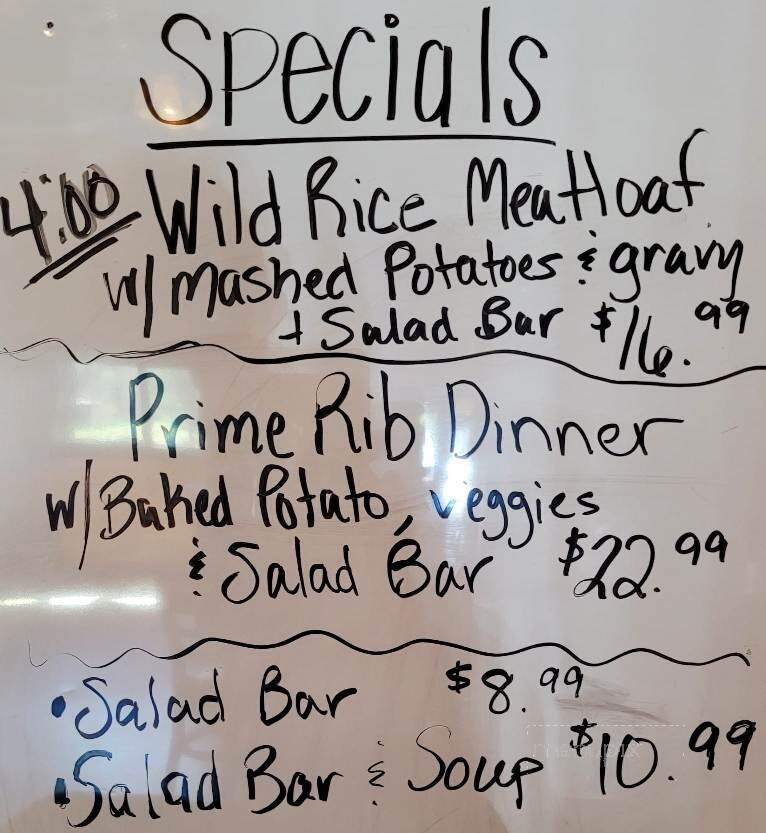 Specials
4:00 Wild Rice Meatloaf
w/ mashed Potatoes & gravy
+ Salad Bar $16.99
Prime Rib Dinner
w/ Baked Potato, veggies
& Salad Bar $22.99
• Salad Bar $8.99
• Salad Bar & Soup $10.99